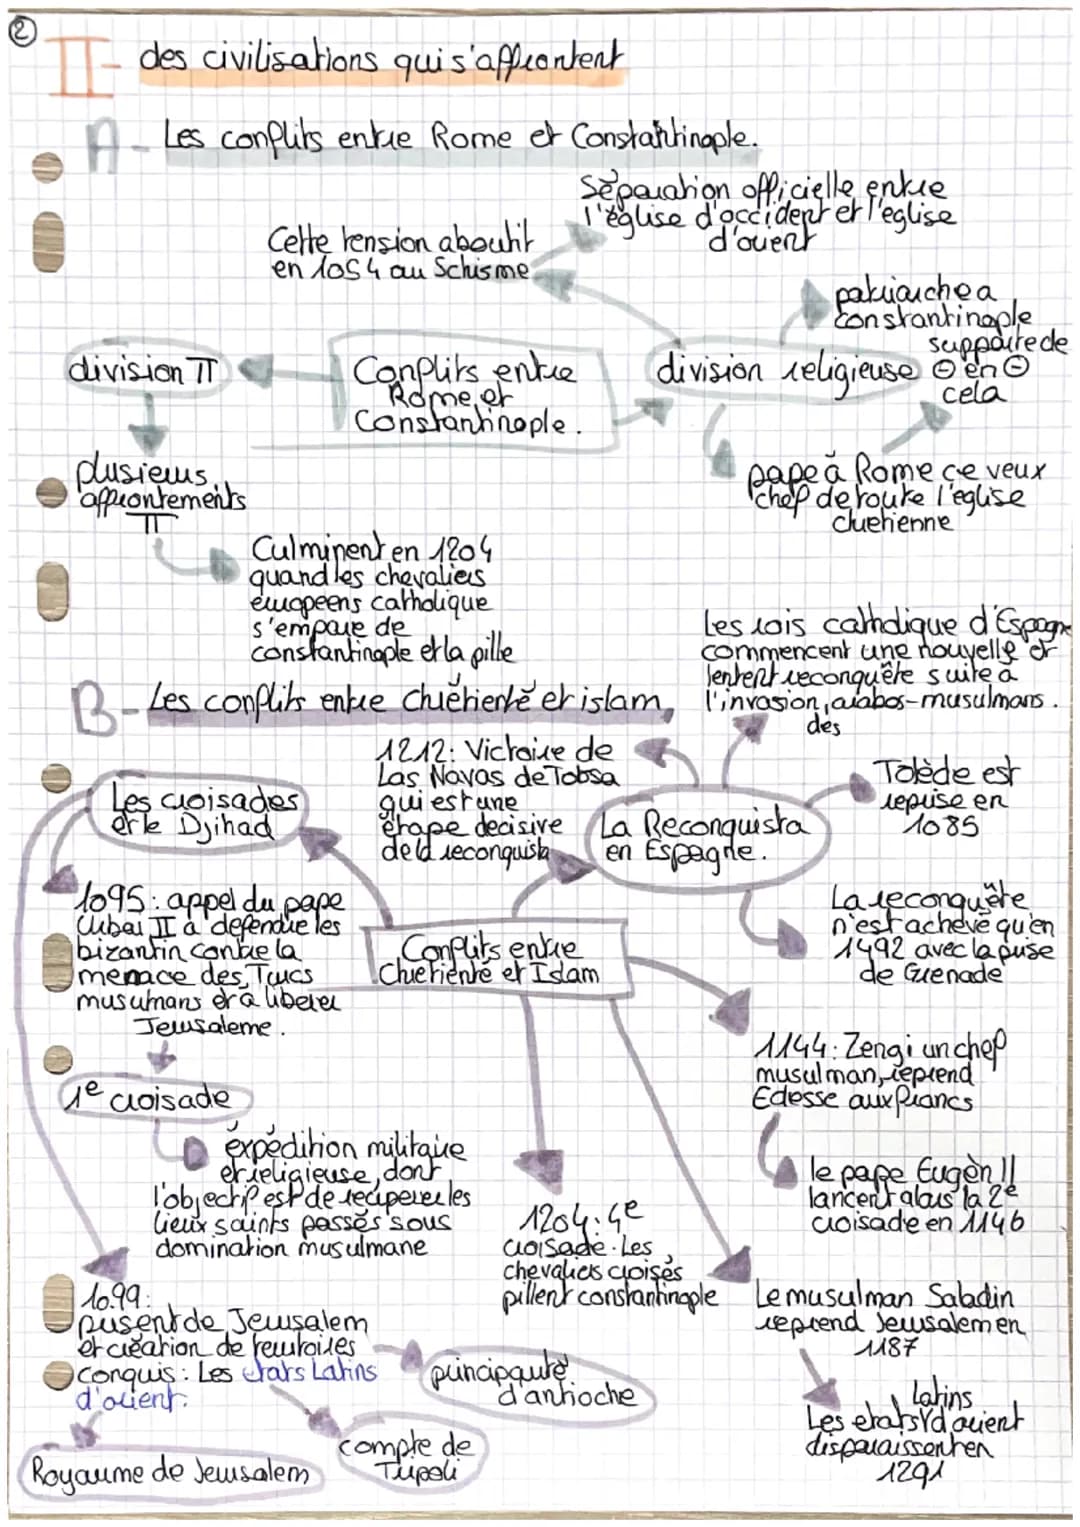 ②
II- des civilisations qui s'affrontent
A- Les conflits entre Rome et Constantinople.
Séparation officielle entre
l'église d'occident et l'eglise
d'orient
Cette tension aboutit
en 1054 au Schisme
patriarche a
constantinople
supporte de
⊖ en ⊖
cela
division π
Conflits entre
Rome et
Constantinople.
division religieuse
plusieurs
affrontements
π
pape à Rome ce veux
chef de toute l'église
chretienne
Culminent en 1204
quand les chevaliers
europeens catholique
s'empare de
constantinople et la pille
Les rois catholique d'Espagne
commencent une nouvelle et
lentent reconquête suite a
l'invasion arabos-musulmans.
des
B- Les conflits entre chrétienté et islam
1212: Victoire de
Las Navas de Tolosa
qui est une
étape decisive
de la reconquista
Tolède est
reprise en
1085
Les croisades
et le Djihad
La Reconquista
en Espagne.
1095: appel du pape
Urbai II a defendre les
bizantin contre la
menace des Turcs
musulmans et à liberer
Jerusaleme.
La reconquête
n'est achevé qu'en
1492 avec la prise
de Grenade
Conflits entre
Chretienté et Islam
1144: Zengi un chef
musulman, reprend
Edesse aux francs
1e croisade
expédition militaire
et religieuse, dont
l'objectif est de recuperer les
lieux saints passés sous
domination musulmane
le pape Eugèn II
lancent alors la 2e
croisade en 1146
1204: 4e
croisade. Les
chevaliers croisés
pillent constantinople
1099:
prisent de Jerusalem
et création de territoires
conquis: Les etats Latins
d'orient.
Le musulman Saladin
reprend Jerusalem en
1187
principauté
d'antioche
latins
Les etats d'orient
disparaissent en
1291
compte de
Tripoli
Royaume de Jerusalem